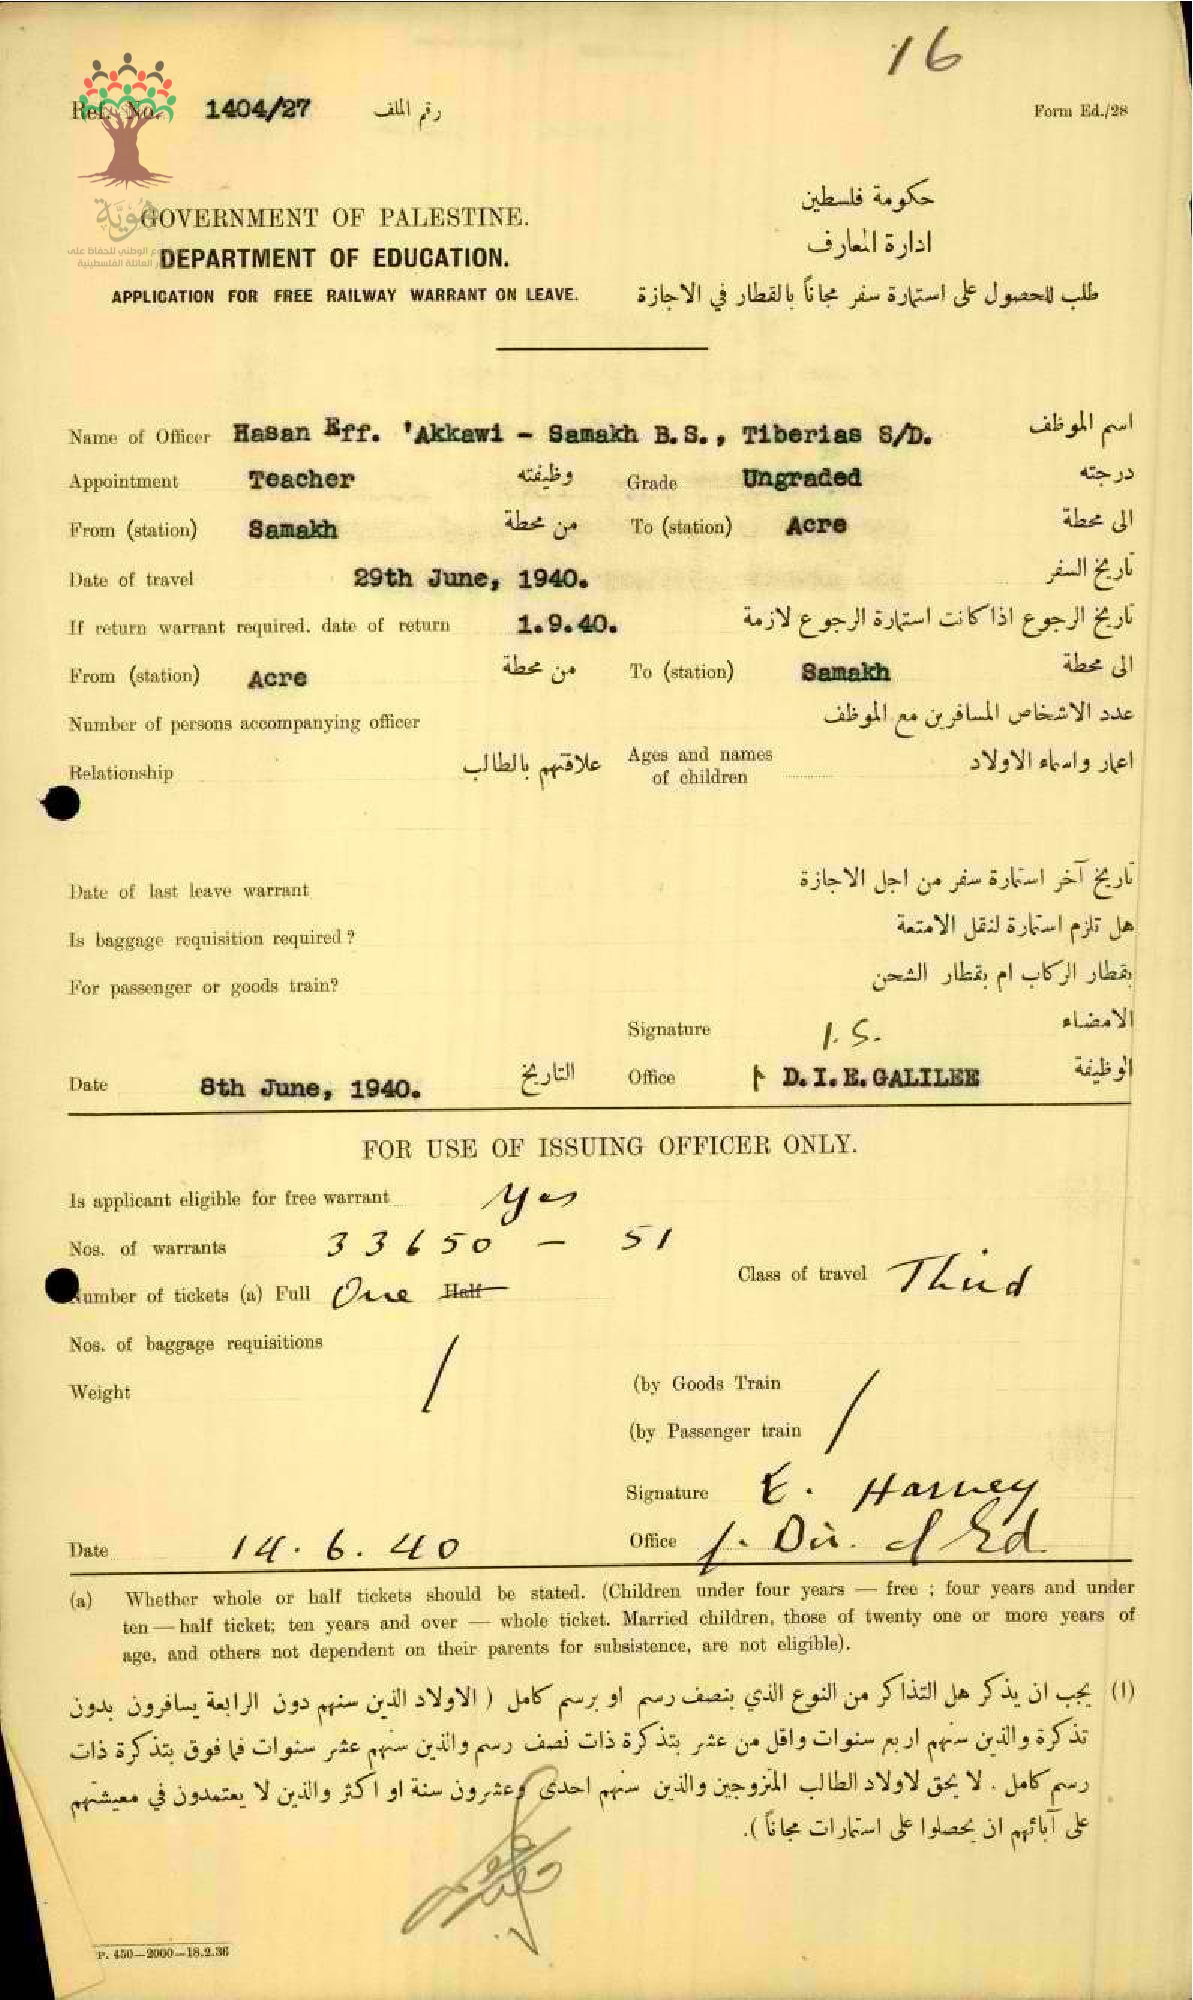 16
Ref. No. 1404/27 رقم الملف
Form Ed./28
هوية
GOVERNMENT OF PALESTINE.
حكومة فلسطين
DEPARTMENT OF EDUCATION.
ادارة المعارف
APPLICATION FOR FREE RAILWAY WARRANT ON LEAVE.
طلب للحصول على استمارة سفر مجاناً بالقطار في الاجازة
Name of Officer Hasan Eff. 'Akkawi - Samakh B.S., Tiberias S/D. اسم الموظف
Appointment Teacher وظيفته Grade Ungraded درجته
From (station) Samakh من محطة To (station) Acre الى محطة
Date of travel 29th June, 1940. تاريخ السفر
If return warrant required. date of return 1.9.40. تاريخ الرجوع اذا كانت استمارة الرجوع لازمة
From (station) Acre من محطة To (station) Samakh الى محطة
Number of persons accompanying officer عدد الاشخاص المسافرين مع الموظف
Relationship علاقتهم بالطالب Ages and names of children اعمار واسماء الاولاد
Date of last leave warrant تاريخ آخر استمارة سفر من اجل الاجازة
Is baggage requisition required? هل تلزم استمارة لنقل الامتعة
For passenger or goods train? بقطار الركاب ام بقطار الشحن
Signature I.S. الامضاء
Date 8th June, 1940. التاريخ Office D.I.E.GALILEE الوظيفة
FOR USE OF ISSUING OFFICER ONLY.
Is applicant eligible for free warrant Yes
Nos. of warrants 33650 - 51
Class of travel Third
Number of tickets (a) Full One Half
Nos. of baggage requisitions /
Weight
(by Goods Train
(by Passenger train /
Signature E. Harvey
Date 14.6.40 Office f. Dir. of Ed
(a) Whether whole or half tickets should be stated. (Children under four years — free ; four years and under
ten — half ticket; ten years and over — whole ticket. Married children, those of twenty one or more years of
age, and others not dependent on their parents for subsistence, are not eligible).
(ا) يجب ان يذكر هل التذاكر من النوع الذي بنصف رسم او برسم كامل ( الاولاد الذين سنهم دون الرابعة يسافرون بدون
تذكرة والذين سنهم اربع سنوات واقل من عشر بتذكرة ذات نصف رسم والذين سنهم عشر سنوات فما فوق بتذكرة ذات
رسم كامل . لا يحق لاولاد الطالب المتزوجين والذين سنهم احدى وعشرون سنة او اكثر والذين لا يعتمدون في معيشتهم
على آبائهم ان يحصلوا على استمارات مجاناً ).
P. 450—2000—18.2.36